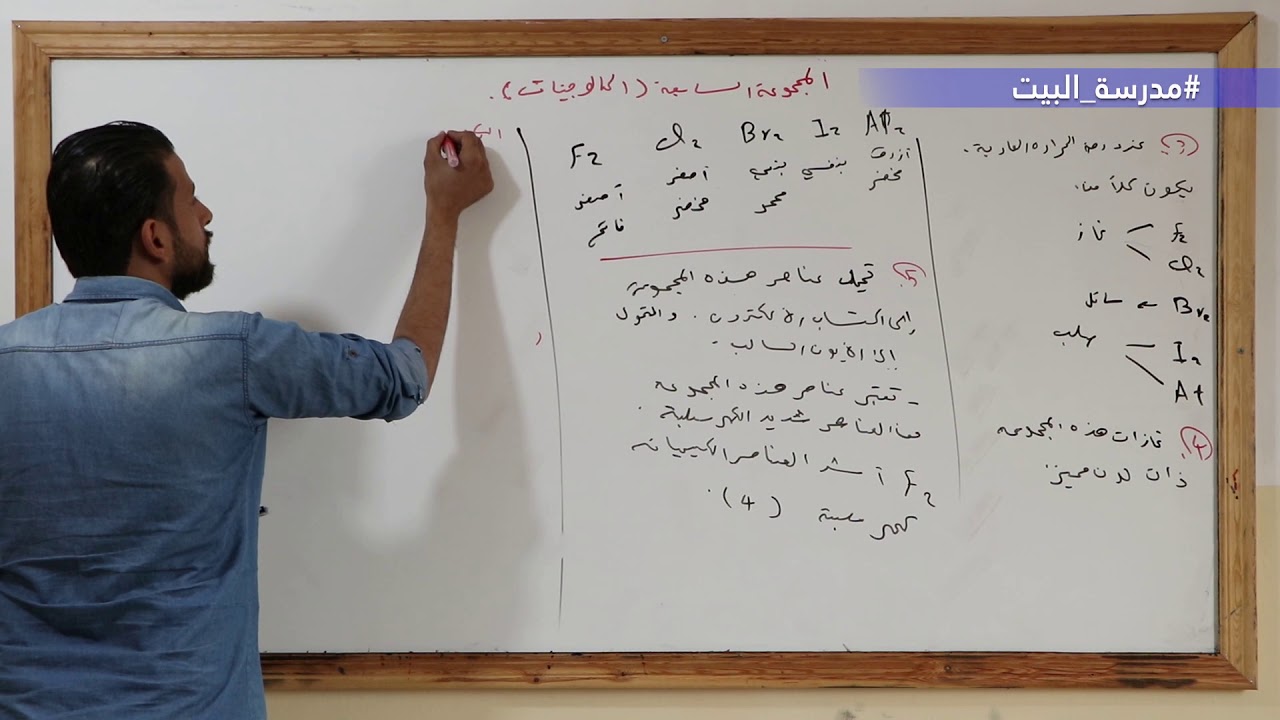 #مدرسة_البيت
المجموعة السابعة (الهالوجينات).
(3) عند درجة الحرارة العادية.
يكون كلاً من
F2
غاز
Cl2
Br2 ← سائل
صلب
I2
At
(4) غازات هذه المجموعة
ذات لون مميز
F2 Cl2 Br2 I2 At2
أصفر فاتح
أصفر مخضر
بني محمر
بنفسجي
أزرق مخضر
(5) تميل عناصر هذه المجموعة
إلى اكتساب الالكترون. والتحول
إلى الايون السالب.
- تعتبر عناصر هذه المجموعة
من العناصر شديد الكهرسلبية.
F2 أشد العناصر الكيميائية
كهرسلبية (4).